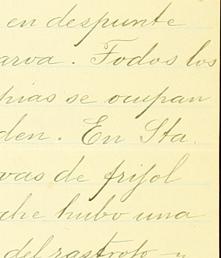 en despunte
arva. Todos los
hias se ocupan
den. En Sta.
vas de frijol
che hubo una
del rastrojo y